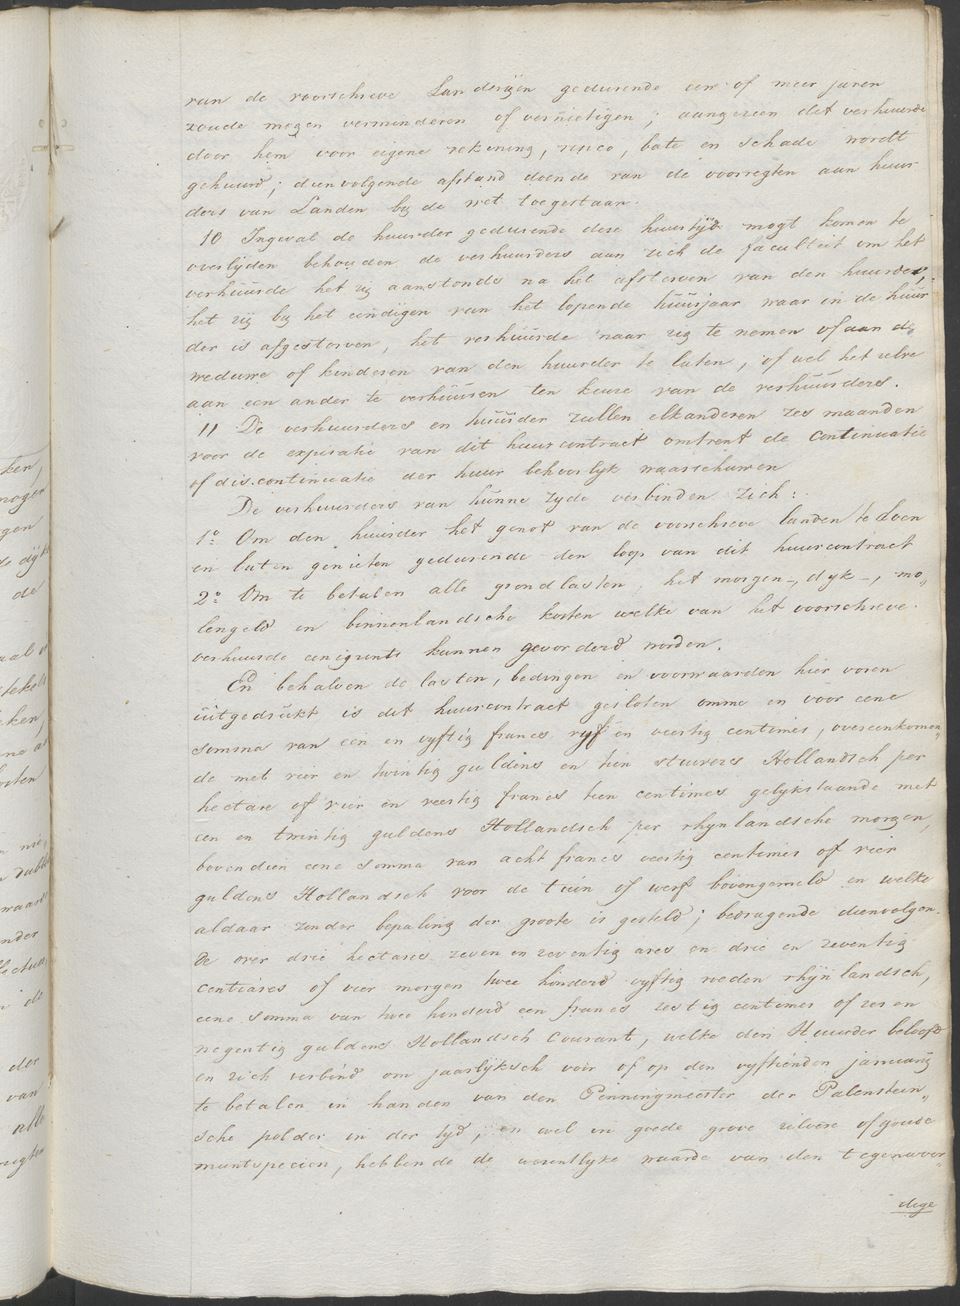 van de voorschreve Landerijen gedurende een of meer jaren
zoude mogen verminderen of vernietigen; aangezien het verhuurde
door hem voor eigene rekening, resico, bate en schade wordt
gehuurd; dienvolgende afstand doende van de voorregten aan huur
ders van Landen bij de wet toegestaan.
10 Ingeval de huurder gedurende deze huurtijd mogt komen te
overlijden behouden de verhuurders aan zich de faculteit om het
verhuurde het zij aanstonds na het afsterven van den huurder,
het zij bij het eindigen van het lopende huurjaar waar in de huur
der is afgestorven, het verhuurde naar zig te nemen of aan de
weduwe of kinderen van den huurder te laten, of wel het zelve
aan een ander te verhuuren ten keuze van de verhuurders.
11 De verhuurders en huurder zullen elkanderen zes maanden
voor de expiratie van dit huurcontract omtrent de continuatie
of discontinuatie der huur behoorlyk waarschuwen
De verhuurders van hunne zyde verbinden zich:
1o Om den huurder het genot van de voorschreve landen te doen
en laten genieten gedurende den loop van dit huurcontract
2o Om te betalen alle grondlasten, het morgen-, dyk-, mo„
lengeld en binnenlandsche kosten welke van het voorschreve
verhuurde eenigzints kunnen gevorderd worden.
En behalven de lasten, bedingen en voorwaarden hier voren
uitgedrukt is dit huurcontract gesloten omme en voor eene
somma van een en vyftig francs vyf en veertig centimes, overeenkomen„
de met vier en twintig guldens en tien stuivers Hollandsch per
hectare of vier en veertig francs tien centimes gelijkstaande met
een en twintig guldens Hollandsch per rhynlandsche morgen,
bovendien eene somma van acht francs veertig centimes of vier
guldens Hollandsch voor de tuin of werf bovengemeld en welke
aldaar zonder bepaling der groote is gesteld; bedragende dienvolgen„
de over drie hectares zeven en zeventig ares en drie en zeventig
centiares of vier morgen twee honderd vyftig roeden rhijnlandsch,
eene somma van twee honderd een francs zestig centimes of zes en
negentig guldens Hollandsch Courant, welke den Huurder beloofd
en zich verbind om jaarlyksch voor of op den vyftienden january
te betalen in handen van den Penningmeester der Palenstein„
sche polder in der tyd, en wel in goede grove zilvere of goude
muntspecien, hebbende de wezentlyke waarde van den tegenwoor„
dige